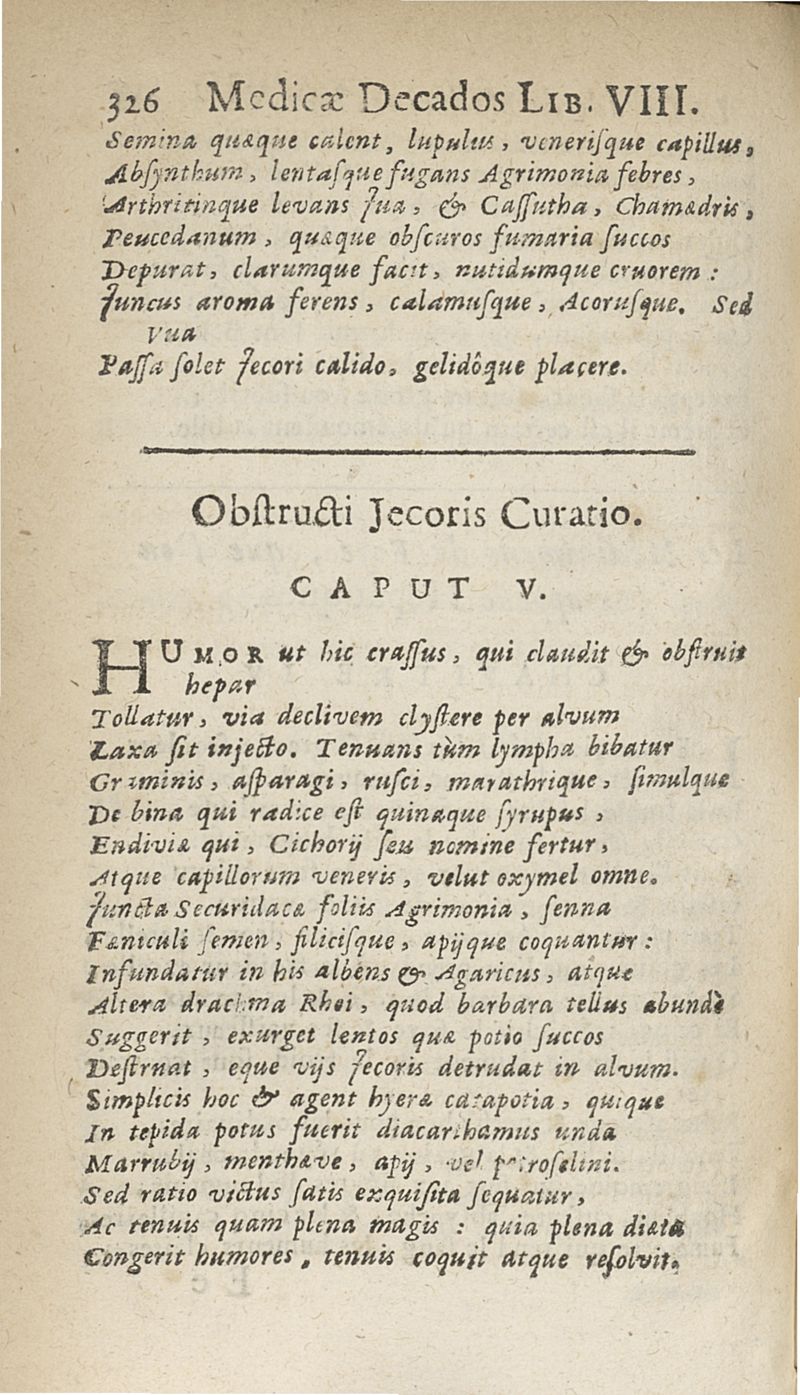 326 Medicæ Decados LIB. VIII.
Semina quæque calent, lupulus, venerisque capillus,
Absynthum, lentasque fugans Agrimonia febres,
Arthritinque levans Jva, & Cassutha, Chamædris,
Peucedanum, quæque obscuros fumaria succos
Depurat, clarumque facit, nitidumque cruorem:
Juncus aroma ferens, calamusque, Acorusque. Sed
Vva
Passa solet Jecori calido, gelidôque placere.
Obstructi Jecoris Curatio.
CAPUT V.
HUMOR ut hic crassus, qui claudit & obstruit
hepar
Tollatur, via declivem clystere per alvum
Laxa sit injecto. Tenuans tùm lympha bibatur
Graminis, asparagi, rusci, marathrique, simulque
De bina qui radice est quinaque syrupus,
Endiviæ qui, Cichorij seu nomine fertur,
Atque capillorum veneris, velut oxymel omne.
Juncta Securidacæ foliis Agrimonia, senna
Fæniculi semen, filicisque, apijque coquantur:
Infundatur in his albens & Agaricus, atque
Altera drachma Rhei, quod barbara tellus abundè
Suggerit, exurget lentos quæ potio succos
Destruat, eque vijs Jecoris detrudat in alvum.
Simplicis hoc & agent hyeræ catapotia, quique
In tepida potus fuerit diacarthamus unda
Marrubij, menthæve, apij, vel petroselini.
Sed ratio victus satis exquisita sequatur,
Ac tenuis quam plena magis: quia plena diæta
Congerit humores, tenuis coquit atque resolvit.